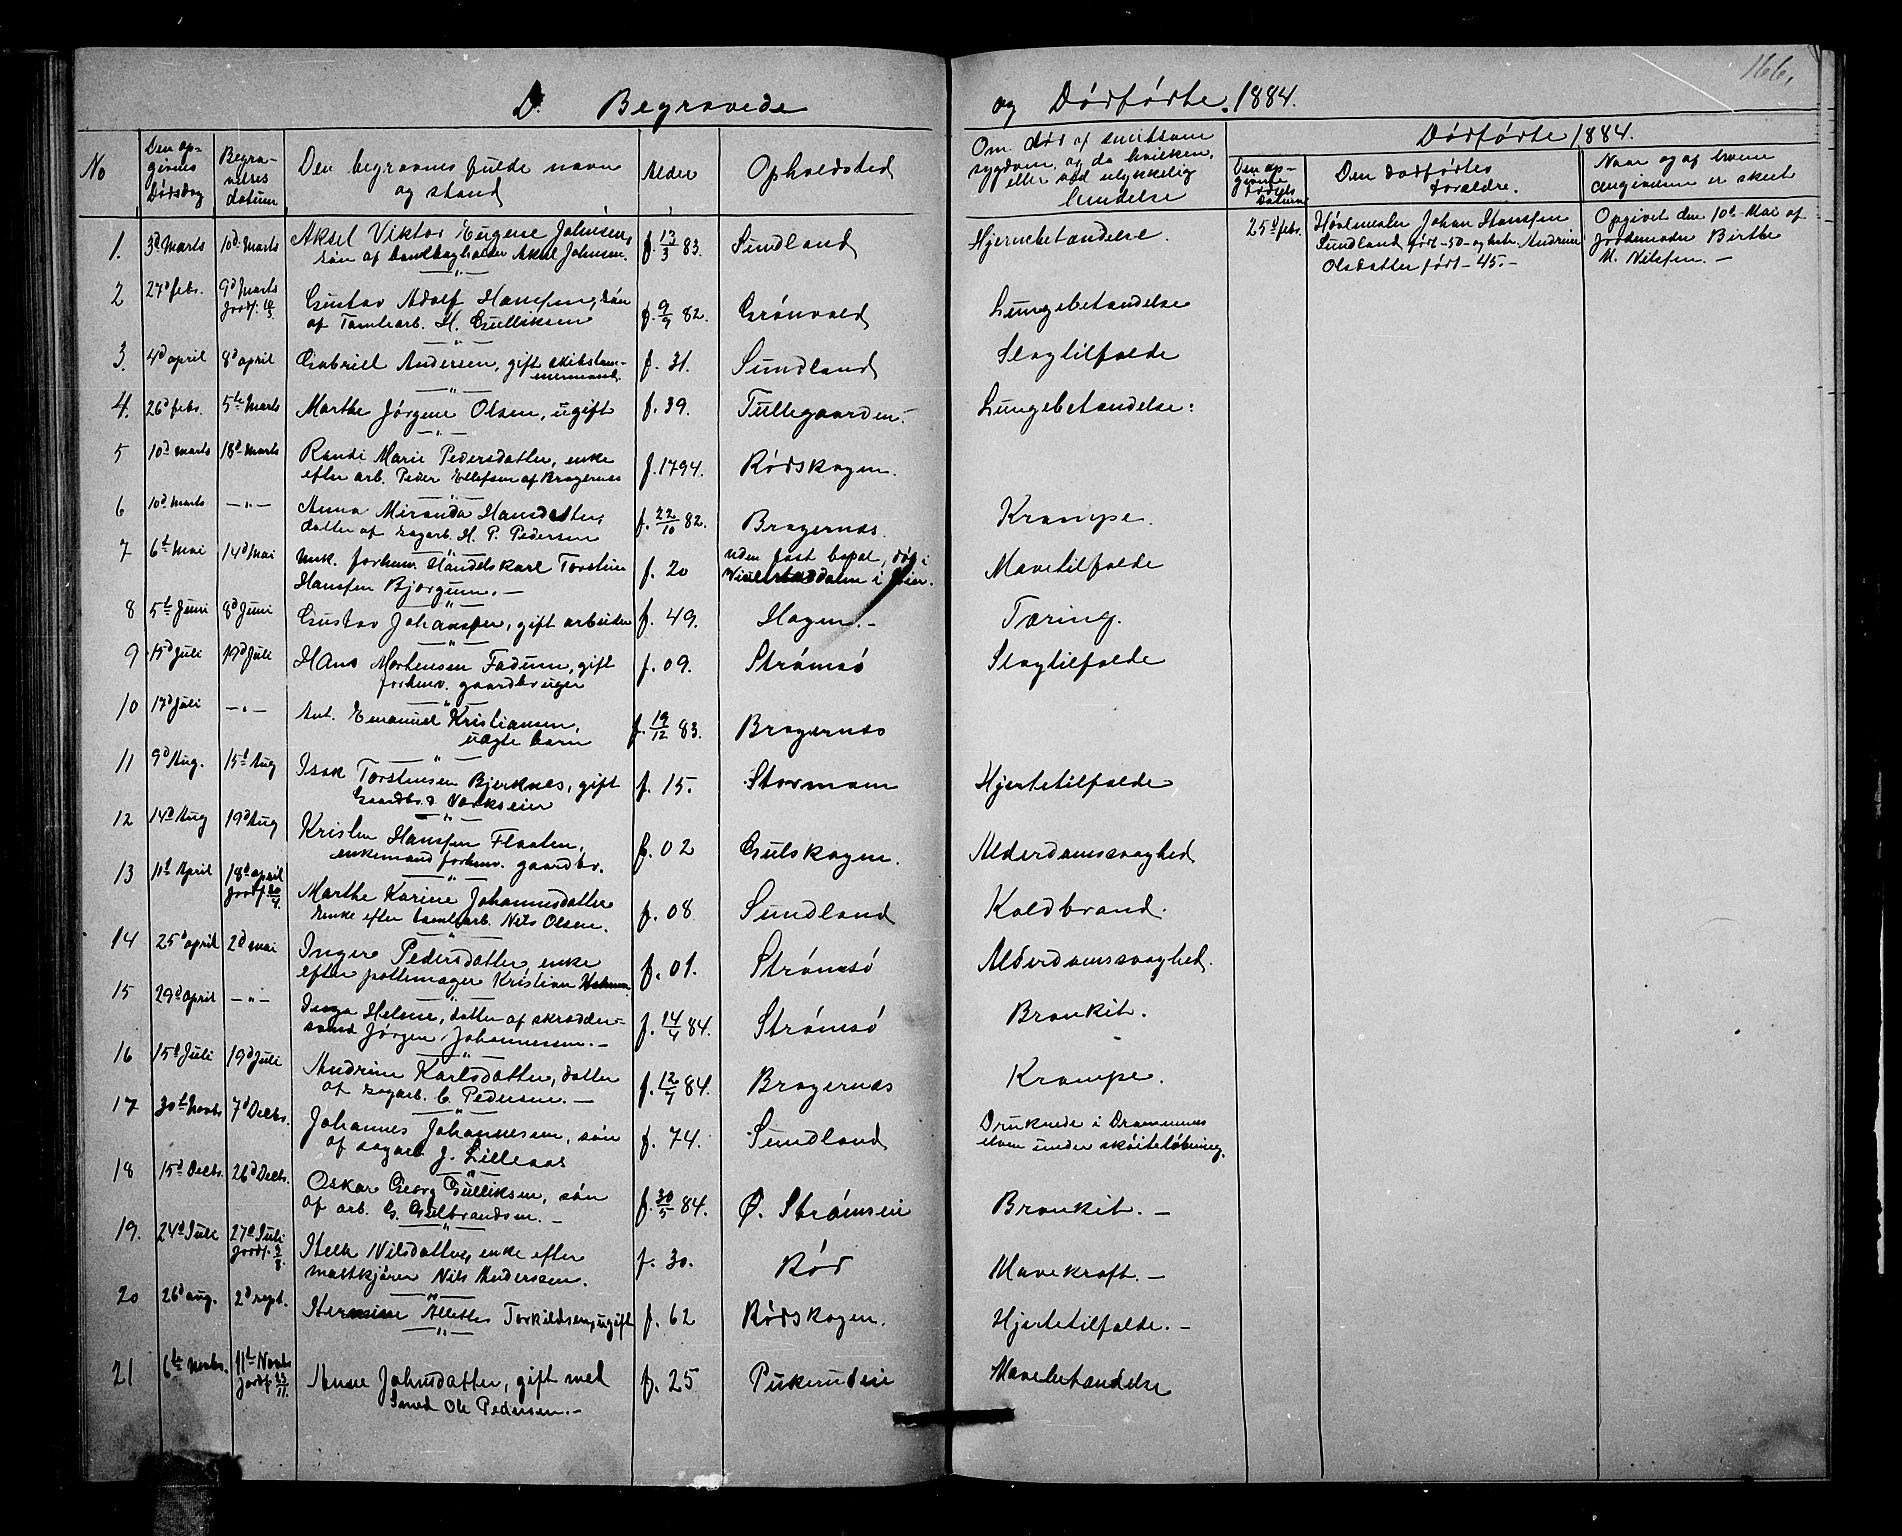 166.
D. Begravede
og Dødfødte 1884.
No
Den op-
givne
Dødsdag
Begra-
velses
datum
Den begravnes fulde navn
og stand
Alder
Opholdsted
Om død af smitsom
sygdom, og da hvilken,
eller ved ulykkelig
hendelse
Dødfødte 1884.
Den op-
givne
fødsels
Datum
Den dødfødtes
forældre.
Naar og af hvem
angivelsen er skeet
1. 3d Marts 10d Marts Aksel Viktor Eugene Johnsen,
søn af landhandler Aksel Johnsen. f. 13/3 83. Sundland Hjernebetændelse.
25d febr. Johan Hansen
Sundland født -50- og Andrine
Olsdatter født -45.-
Opgivet den 10de Mai af
jordemoder Birthe
M. Nilsen. -
2 27d febr. 9d Marts
Jordf. Gustav Adolf Hansen, søn
af Tomtearb. H. Gulliksen f. 9/9 82. Grønvold Lungebetændelse
3. 4d april 8d april Gabriel Andersen, gift skibstøm-
mermand. f. 31. Sundland Slagtilfælde
4. 26d febr. 5te Marts Marthe Jørgine Olsen, ugift f. 39. Tollegaarden.- Lungebetændelse:
5 10d marts 18d Marts Randi Marie Pedersdatter, enke
efter arb. Peder Ellefsen af Bragernæs f. 1794. Rødskogen.
6 10d Marts -"- Anna Miranda Hansdatter,
datter af sagarb. H. P. Pedersen f. 22/10 82. Bragernæs. Krampe.
7 6te Mai 14d Mai Enk. forhenv. Handelskarl Torstein
Hansen Bjørgum. - f. 20 uden fast bopæl, død i
i Eier. Mavetilfælde
8 5te Juni 8d Juni Gustav Johansen, gift arbeider f. 49. Hagen.- Tæring.
9 15d Juli 19d Juli Hans Mortensen Fadum, gift
forhenv. gaardbruger f. 09. Strømsø Slagtilfælde
10 17d Juli -"- Ant. Emanuel Kristiansen,
uægte barn f. 19/12 83. Bragernæs
11 9d Aug. 15d Aug Isak Torstensen Bjerknes, gift
Gaardbr. & Værkseier f. 15. Stormoen Hjertetilfælde
12 14d Aug 19d Aug Kristen Hansen Flaaten,
enkemand forhenv. gaardbr. f. 02 Gulskogen. Alderdomssvaghed
13 11te April 18d april
Jordf. 20/4 Marthe Karine Johannesdatter
Enke efter tomtearb. Nils Olsen. f. 08 Sundland Koldbrand.
14 25d april 2d mai Inger Pedersdatter enke
efter pottemager Kristian f. 01. Strømsø Alderdomssvaghed.
15 29d april -"- Inga Helene, datter af skrædder-
svend Jørgen Johannessen. - f. 14/4 84. Strømsø Bronkit.
16 15d Juli 19d Juli Andrine Karlsdatter, datter
af sagarb. C. Pedersen. - f. 12/7 84. Bragernæs Krampe.
17 30te Novbr 7d Decbr. Johannes Johannesen, søn
af sagarb J. Lilleaas f. 74. Sundland Druknede i Drammens
elven under skøiteløbning.
18 15d Decbr. 26d Decbr. Oskar Georg Gulliksen, søn
af arb. G. Gulbrandsen. - f. 30/5 84. Ø. Strømsei Bronkit. -
19. 24d Juli 27d Juli
Jordf. 3/8 Helle Nilsdatter, enke efter
maltkjører Nils Anderssen. f. 30. Rød Mavekræft. -
20 26d aug. 2d sept. Hermine Alette Torkildsen, ugift f. 62 Rødskogen. Hjertetilfælde. -
21 6te Novbr. 11te Novbr
Jordf. 23/11. Anne Johnsdatter, gift med
Smed Ole Pedersen. - f. 25 Pukerudeie Mavebetændelse